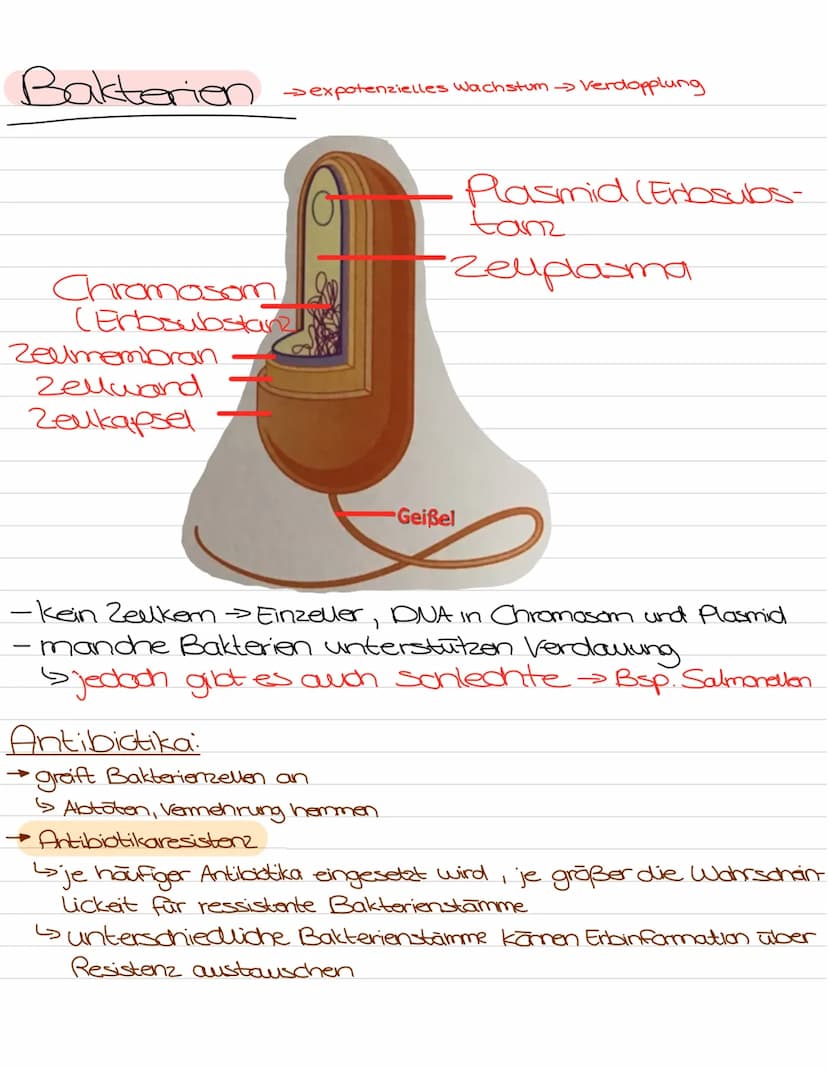 Bakterien
→ expotenzielles Wachstum → Verdopplung
Plasmid (Erbsubs-
tanz
Zellplasma
Chromosom
(Erbsubstanz
Zellmembran
Zellwand
Zellkapsel
Geißel
- kein Zellkern → Einzeller, DNA in Chromosom und Plasmid
- manche Bakterien unterstützen Verdauung
↳ jedoch gibt es auch schlechte → Bsp. Salmonellen
Antibiotika:
→ greift Bakterienzellen an
↳ Abtöten, Vermehrung hemmen
→ Antibiotikaresistenz
↳ je häufiger Antibiotika eingesetzt wird, je größer die Wahrschein-
lickeit für ressistente Bakterienstämme
↳ unterschiedliche Bakterienstämme könen Erbinformation über
Resistenz austauschen